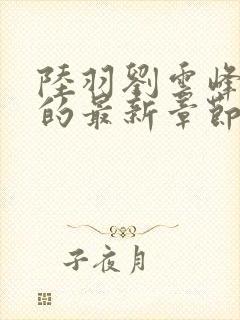 陸羽劉雲峰
的最新章節
子夜月